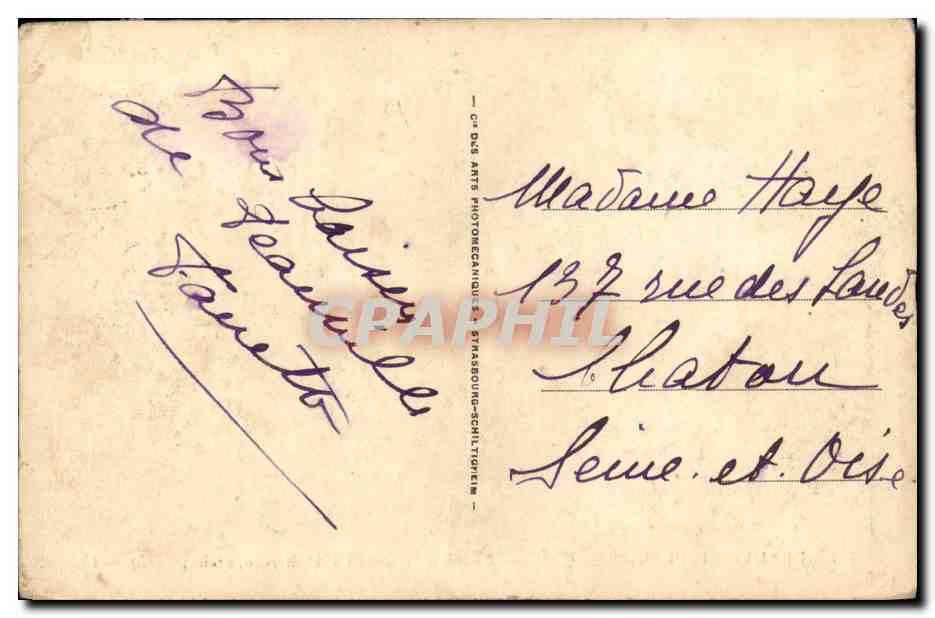 Bons baisers
de Jeanville
Madame Haye
137 rue des Landes
Chatou
Seine et Oise
— Cie DES ARTS PHOTOMÉCANIQUES, STRASBOURG-SCHILTIGHEIM —
CPAPHIL